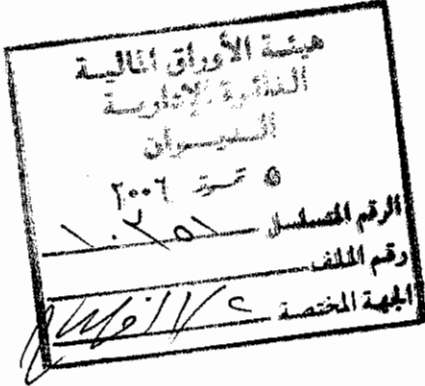 هيئة الأوراق المالية
الدائرة الإدارية
الديوان
٥ تموز ٢٠٠٦
الرقم المتسلسل ١٠٢٥١
رقم الملف
الجهة المختصة